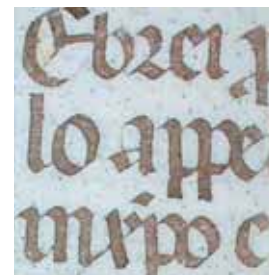 Ebrei
lo appe
in xpo c